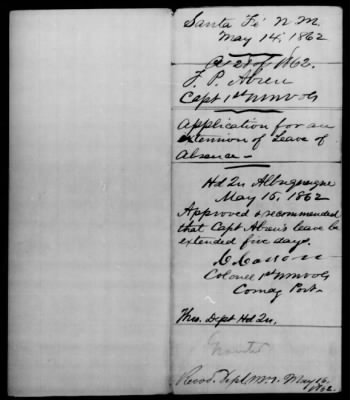 Santa Fé N M.
May 14, 1862
A 28 of 1862.
F. P. Abreu
Capt 1st N M Vols
Application for an
extension of Leave of
Absence –
Hd Qu Albuquerque
May 15, 1862
Approved & recommended
that Capt Abreu's leave be
extended five days.
C Carson
Colonel 1st N M Vols
Comdg Post.
Thro. Dept Hd Qu.
Granted
Recd. Dept N M. May 16. 1862.